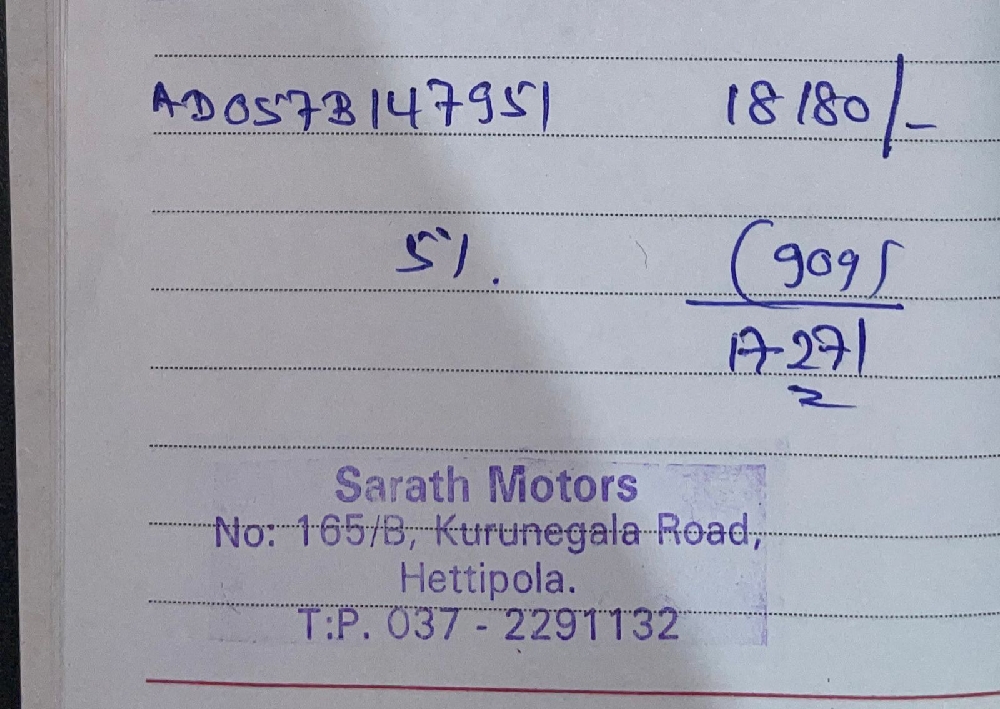 AD057B147951 18180/-
5%. (909)
17271
Sarath Motors
No: 165/B, Kurunegala Road,
Hettipola.
T:P. 037 - 2291132